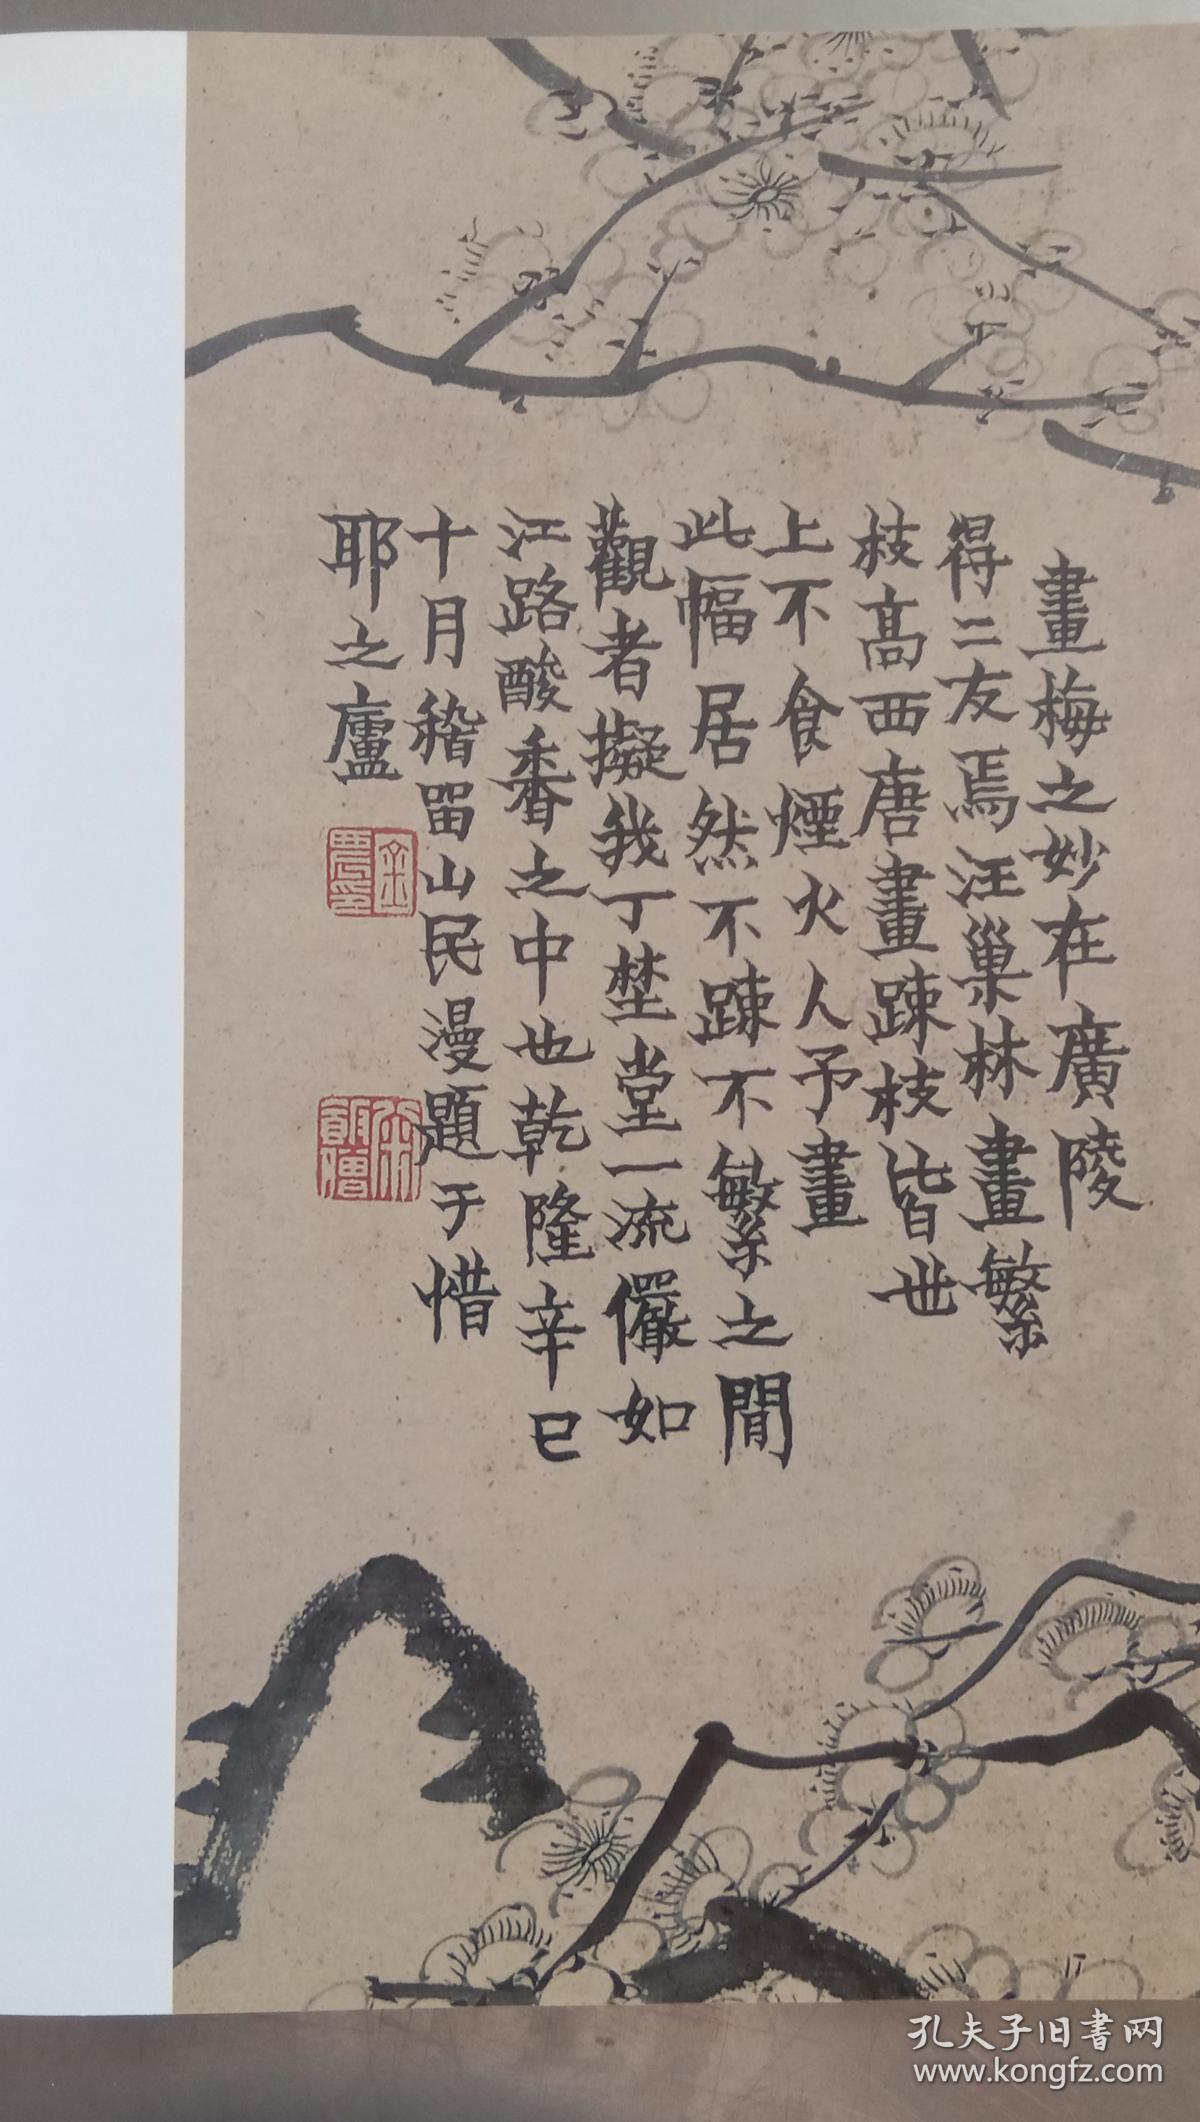 畫梅之妙在廣陵
得二友焉汪巢林畫繁
枝高西唐畫踈枝皆世
上不食煙火人予畫
此幅居然不踈不繁之閒
觀者擬我丁埜堂一流儼如
江路酸香之中也乾隆辛巳
十月稽留山民漫題于惜
耶之廬
金
農印
孔夫子旧書网
www.kongfz.com